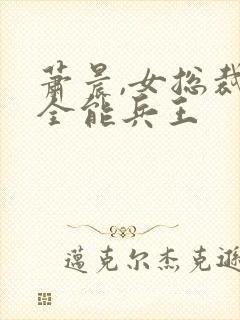 萧晨,女总裁
全能兵王
邁克尔杰克遜